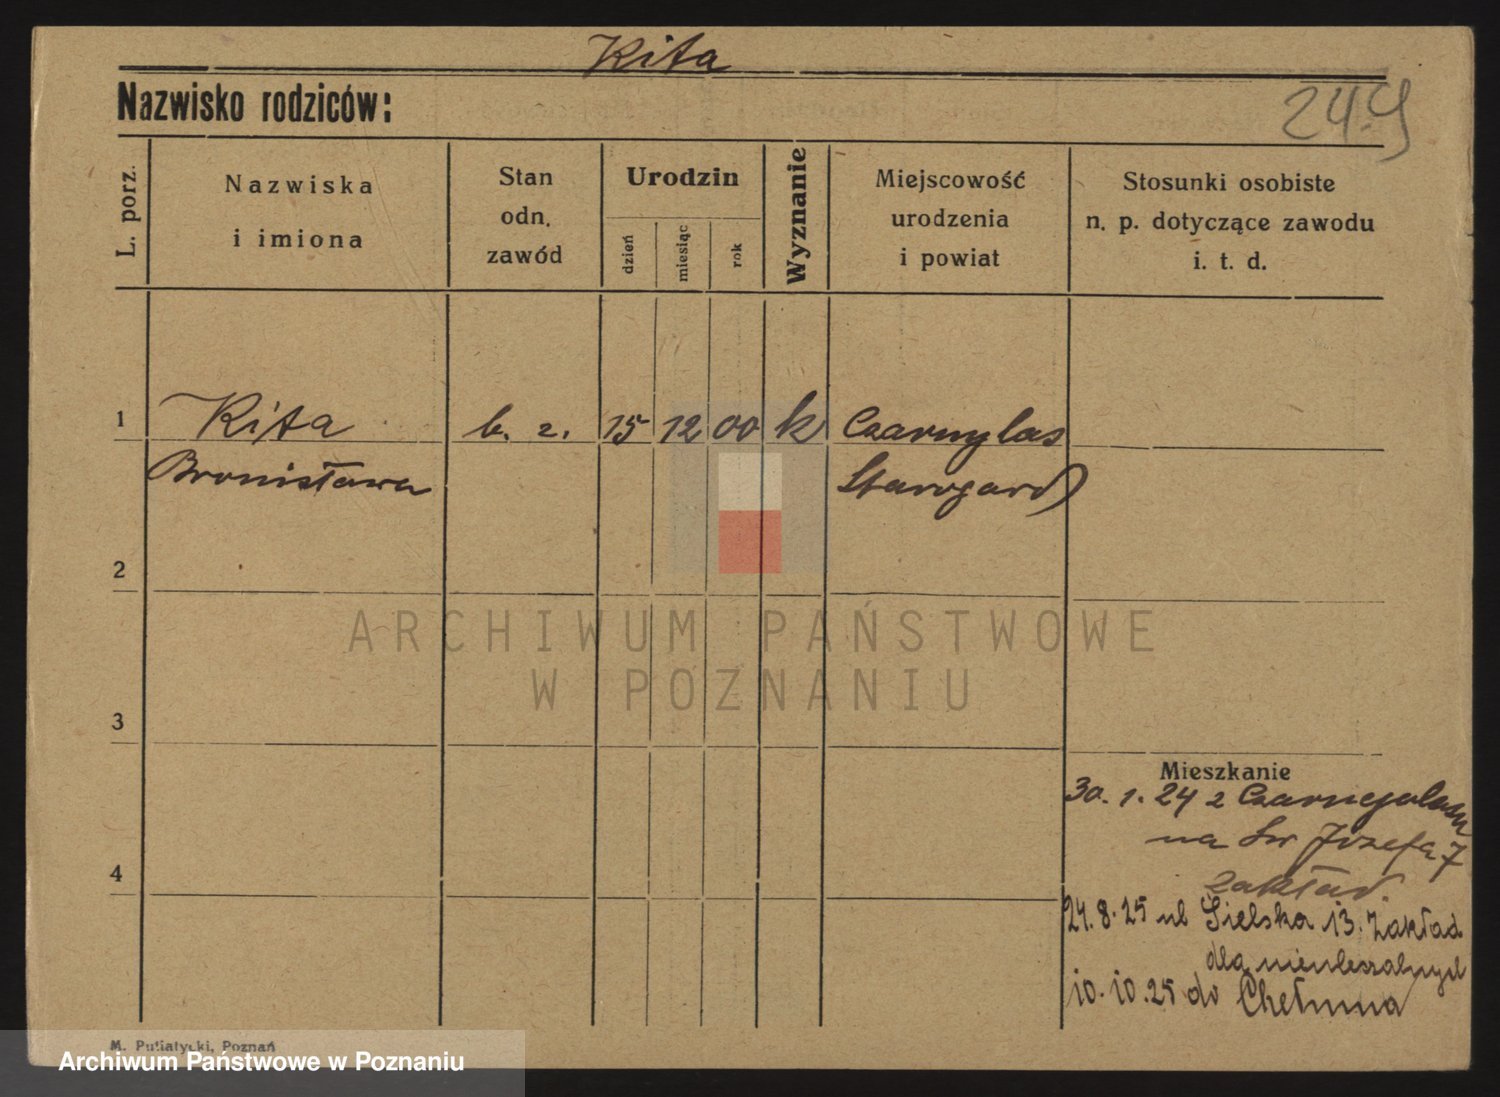 Kita
Nazwisko rodziców:
24.9
L. porz.
Nazwiska
i imiona
Stan
odn.
zawód
Urodzin
dzień
miesiąc
rok
Wyznanie
Miejscowość
urodzenia
i powiat
Stosunki osobiste
n. p. dotyczące zawodu
i. t. d.
1
Kita
b. z.
15
12
00
k
Czarnylas
Bronisława
Starogard
2
ARCHIWUM PAŃSTWOWE
W POZNANIU
3
Mieszkanie
30. 1. 24 z Czarnegolasu
na Św Józefa 7
zakład
4
24. 8. 25 ul Sielska 13. Zakład
dla nieuleczalnych
10. 10. 25 do Chełmna
M. Putiatycki, Poznań
Archiwum Państwowe w Poznaniu